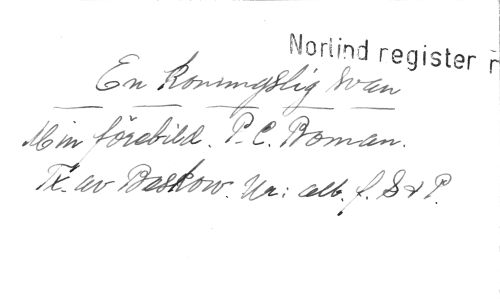 Norlind register
En Konungslig Svan
Min förebild. P. C. Boman.
Tx. av Beskow. Ur: alb. f. S & P.